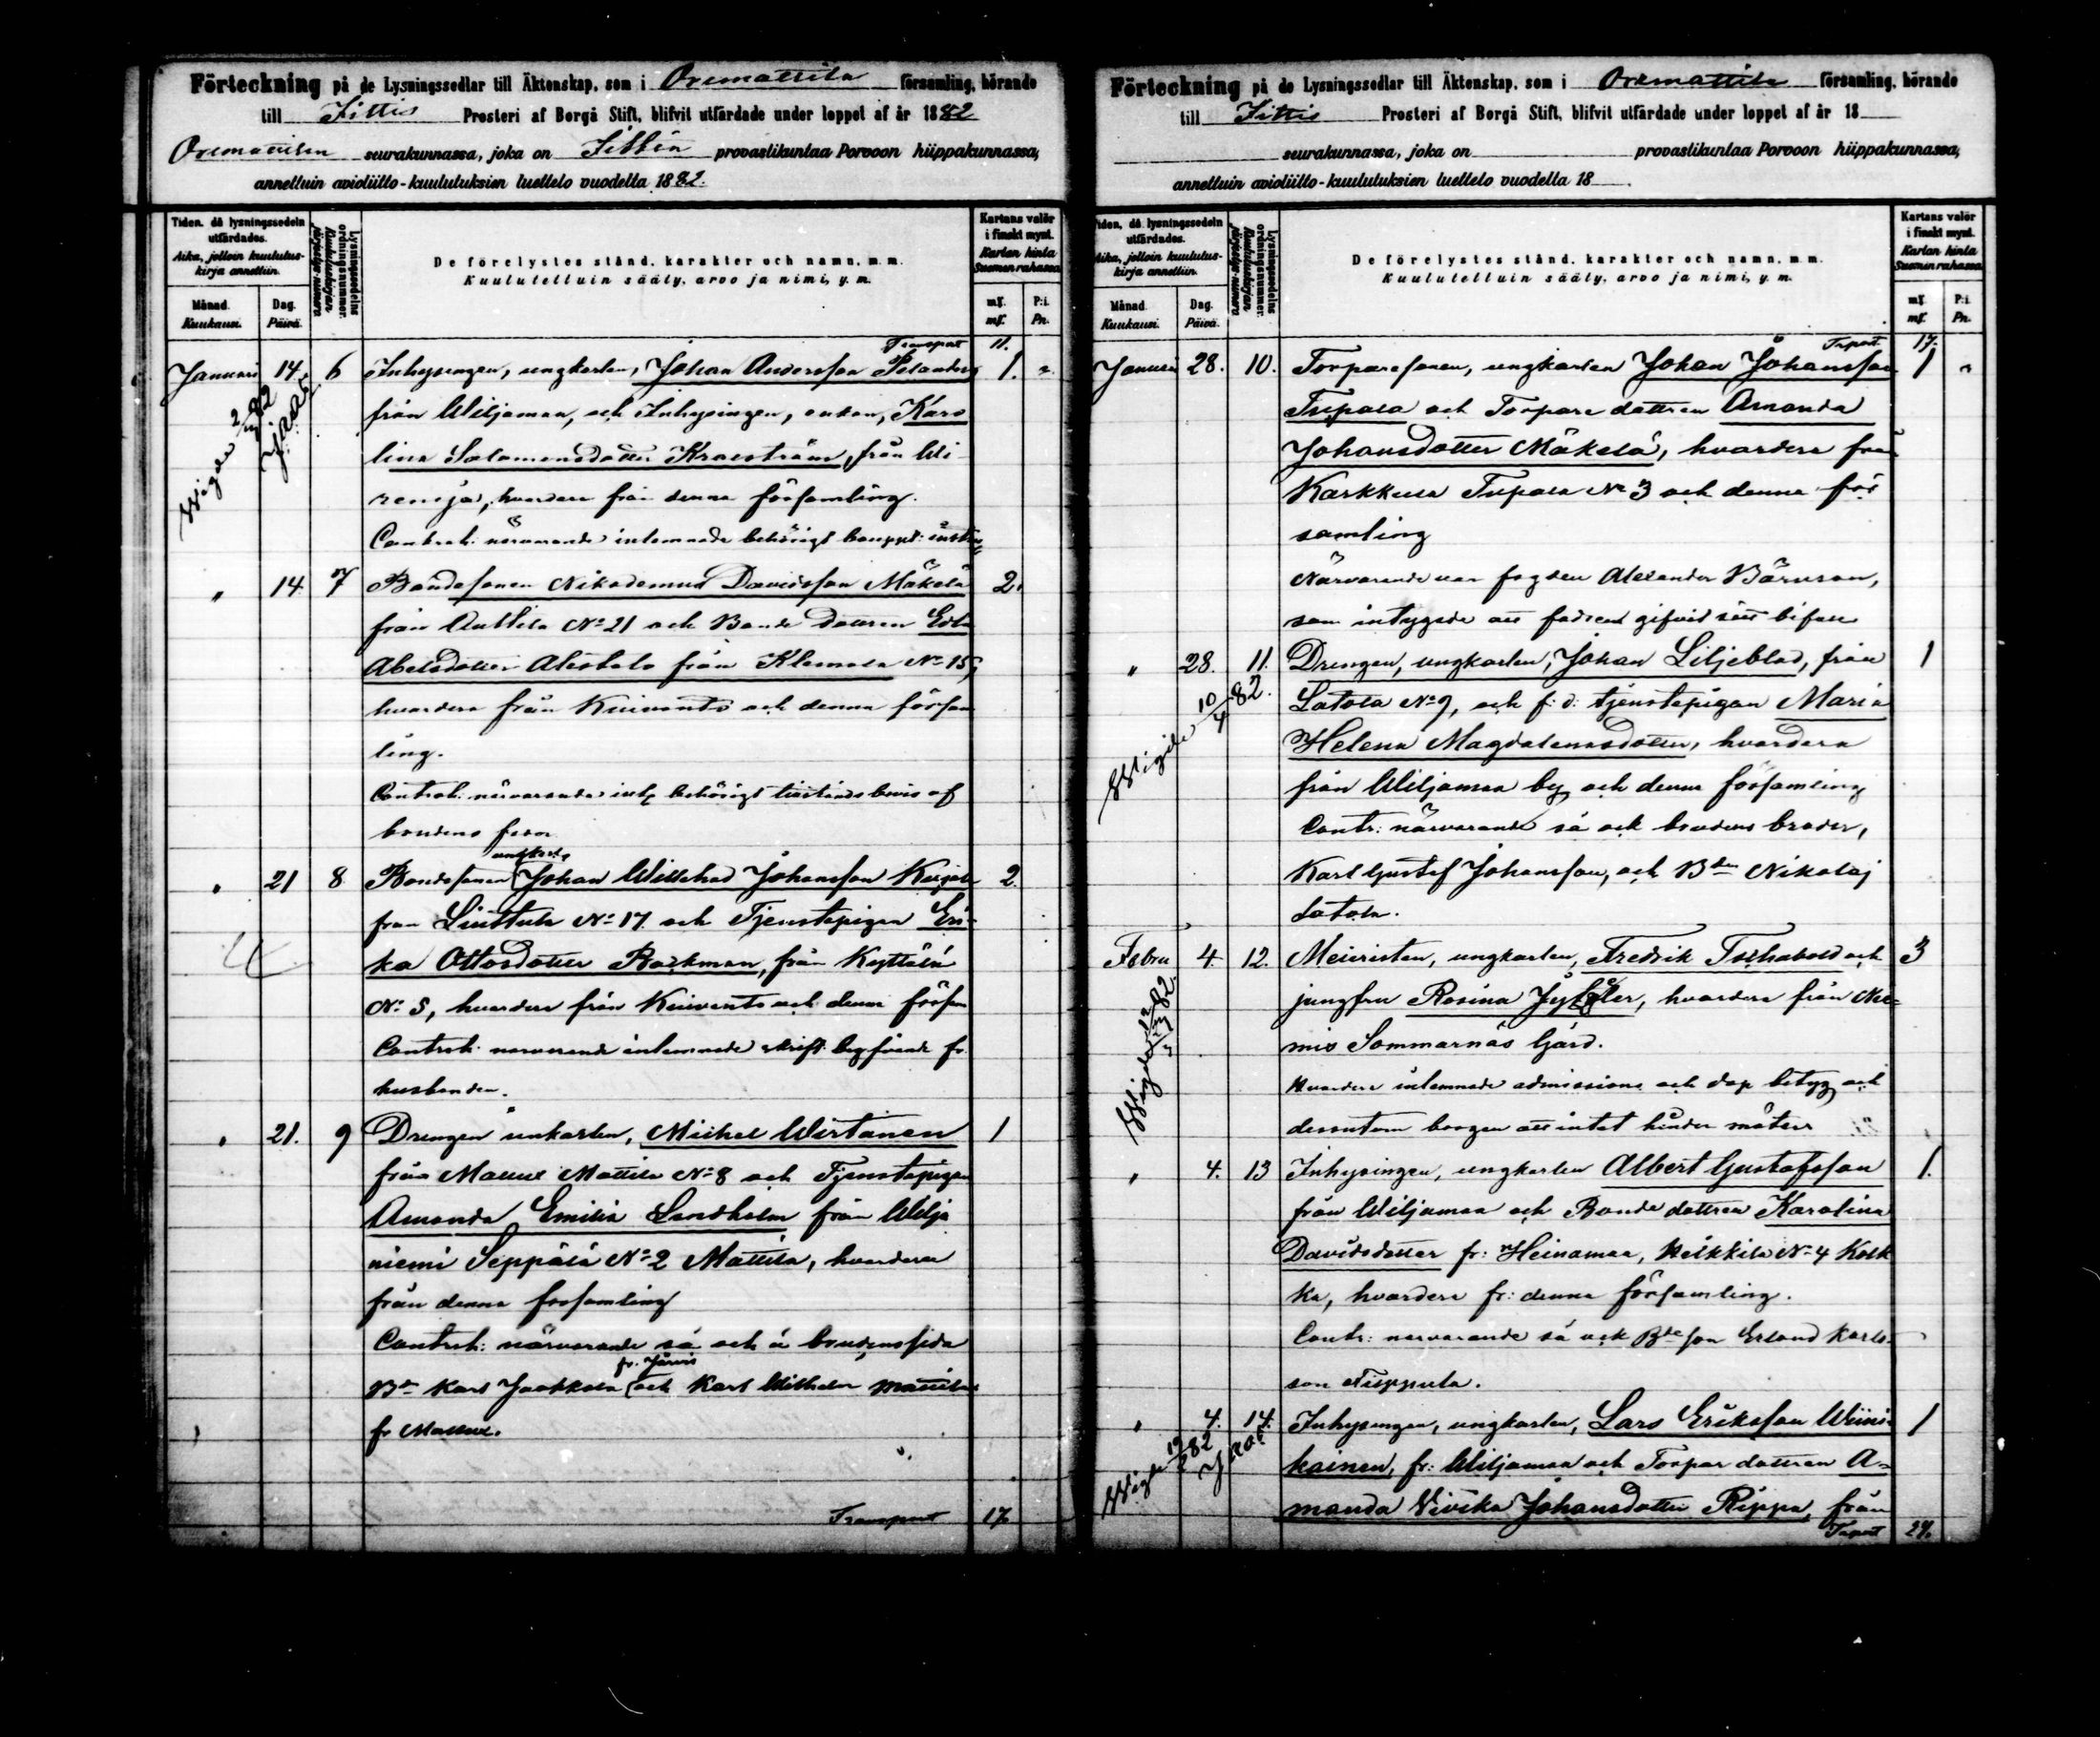 Förteckning på de Lysningssedlar till Äktenskap, som i Orimattila församling, hörande
till Iittis Prosteri af Borgå Stift, blifvit utfärdade under loppet af år 1882
Orimattilan seurakunnassa, joka on Iittin provastikuntaa Porvoon hiippakunnassa,
annettuin avioliitto-kuulutuksien luettelo vuodella 1882.
Tiden, då lysningssedeln utfärdades.
Aika, jolloin kuulutuskirja annettiin.
Månad. Kuukausi.
Dag. Päivä.
Lysningssedelns ordningsnummer.
Kuulutuskirjan järjestys-numero
De förelystes stånd, karakter och namn, m. m.
Kuulutelluin sääty, arvo ja nimi, y. m.
Kartans valör i finskt mynt.
Kartan hinta Suomen rahassa
mf. P:i.
mf. Pn.
Transport 11.
Januari 14. 6 Inhysingen, ungkarlen, Johan Andersson Pelander 1. "
från Wiljamaa, och Inhysingen, enkan, Karo
lina Salamonsdotter Kraeström, från Wi
renoja, hvardera från denna församling.
Wigde
Contrah: närvarande inlemnade behörigt
" 14. 7 Bondesonen Nikodemus Davidsson Mäkelä 2.
från Anttila No 21 och Bonde dottren Edla
Abelsdotter Alestalo från Klemola No 15,
hvardera från Kuivanto och denna försam
ling.
Contrah: närvarande
brudens fader
ungkarlen
" 21 8 Bondesonen Johan Willehad Johansson 2
från Linttula No 17 och Tjenstepigan Eri-
ka Ottosdotter Backman, från Kyttälä
No 5, hvardera från Kuivanto och denna försam
Contrah: närvarande inlemnade skrift. begifvande fr.
husbonden.
" 21. 9 Drengen unkarlen, Michel Wirtanen 1
från Mallusi Mattila No 8 och Tjenstepigan
Amanda Emilia Sandholm från Wilja
niemi Seppälä No 2 Mattila, hvardera
från denna församling
Contrah: närvarande så och å brudens sida
fr. Järvis
Bn Karl Jaakkola och Karl Wilhelm Mattila
fr Mallusi.
Transport 17
Förteckning på de Lysningssedlar till Äktenskap, som i Orimattila församling, hörande
till Iittis Prosteri af Borgå Stift, blifvit utfärdade under loppet af år 18
seurakunnassa, joka on provastikuntaa Porvoon hiippakunnassa,
annettuin avioliitto-kuulutuksien luettelo vuodella 18 .
Tiden, då lysningssedeln utfärdades.
Aika, jolloin kuulutuskirja annettiin.
Månad. Kuukausi.
Dag. Päivä.
Lysningssedelns ordningsnummer.
Kuulutuskirjan järjestys-numero
De förelystes stånd, karakter och namn, m. m.
Kuulutelluin sääty, arvo ja nimi, y. m.
Kartans valör i finskt mynt.
Kartan hinta Suomen rahassa
mf. P:i.
mf. Pn.
Trsport 17.
Januari 28. 10. Torparesonen, ungkarlen Johan Johansson 1 "
Tupala och Torpare dottren Amanda
Johansdotter Mäkelä, hvardera från
Karkkula Tupala No 3 och denna för
samling
Närvarande var fogden Alexander Börman,
som intygade att fadren gifvit sitt bifall
" 28. 11. Drengen, ungkarlen, Johan Liljeblad, från 1
Wigde 10/4 82.
Latola No 9, och f: d: tjenstepigan Maria
Helena Magdalenasdotter, hvardera
från Wiljamaa by och denna församling
Contr: närvarande så ock brudens broder,
Karl Gustaf Johansson, och Bden Nikolaj
Latola.
Febru 4. 12. Meieristen, ungkarlen, Fredrik Tschabold och 3
jungfru Rosina, hvardera från Nie-
mis Sommarnäs Gård.
Hvardera inlemnade admissions och dop betyg och
dessutom borgen att intet hinder möter
" 4. 13 Inhysingen, ungkarlen Albert Gustafsson 1.
från Wiljamaa och Bonde dottren Karolina
Davidsdotter fr: Heinamaa, Heikkilä No 4 Kolk
ka, hvardera fr: denna församling.
Contr: närvarande så ock Bdeson Erland Karls-
son Tuppula.
" 4. 14. Inhysingen, ungkarlen, Lars Eriksson Wiini- 1
Wigde
kainen, fr: Wiljamaa och Torpar dottren A-
manda Vivika Johansdotter Rippa, från
Trsport 24.